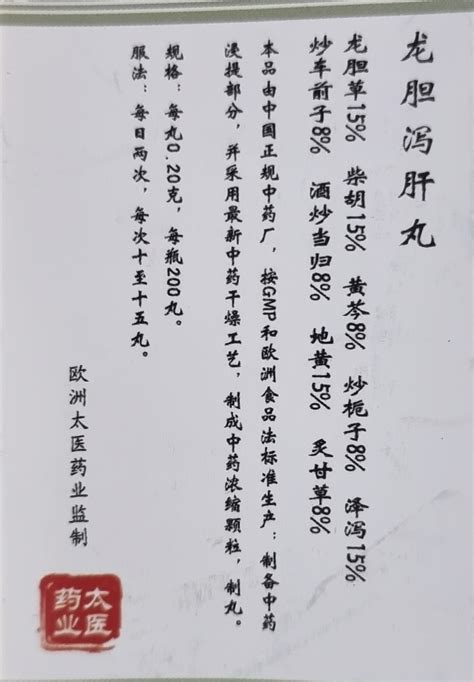 龙胆泻肝丸
龙胆草15% 柴胡15% 黄芩8% 炒栀子8% 泽泻15%
炒车前子8% 酒炒当归8% 地黄15% 炙甘草8%
本品由中国正规中药厂，按GMP和欧洲食品法标准生产：制备中药
浸提部分，并采用最新中药干燥工艺，制成中药浓缩颗粒，制丸。
规格：每丸0.20克，每瓶200丸。
服法：每日两次，每次十至十五丸。
欧洲太医药业监制
太医
药业